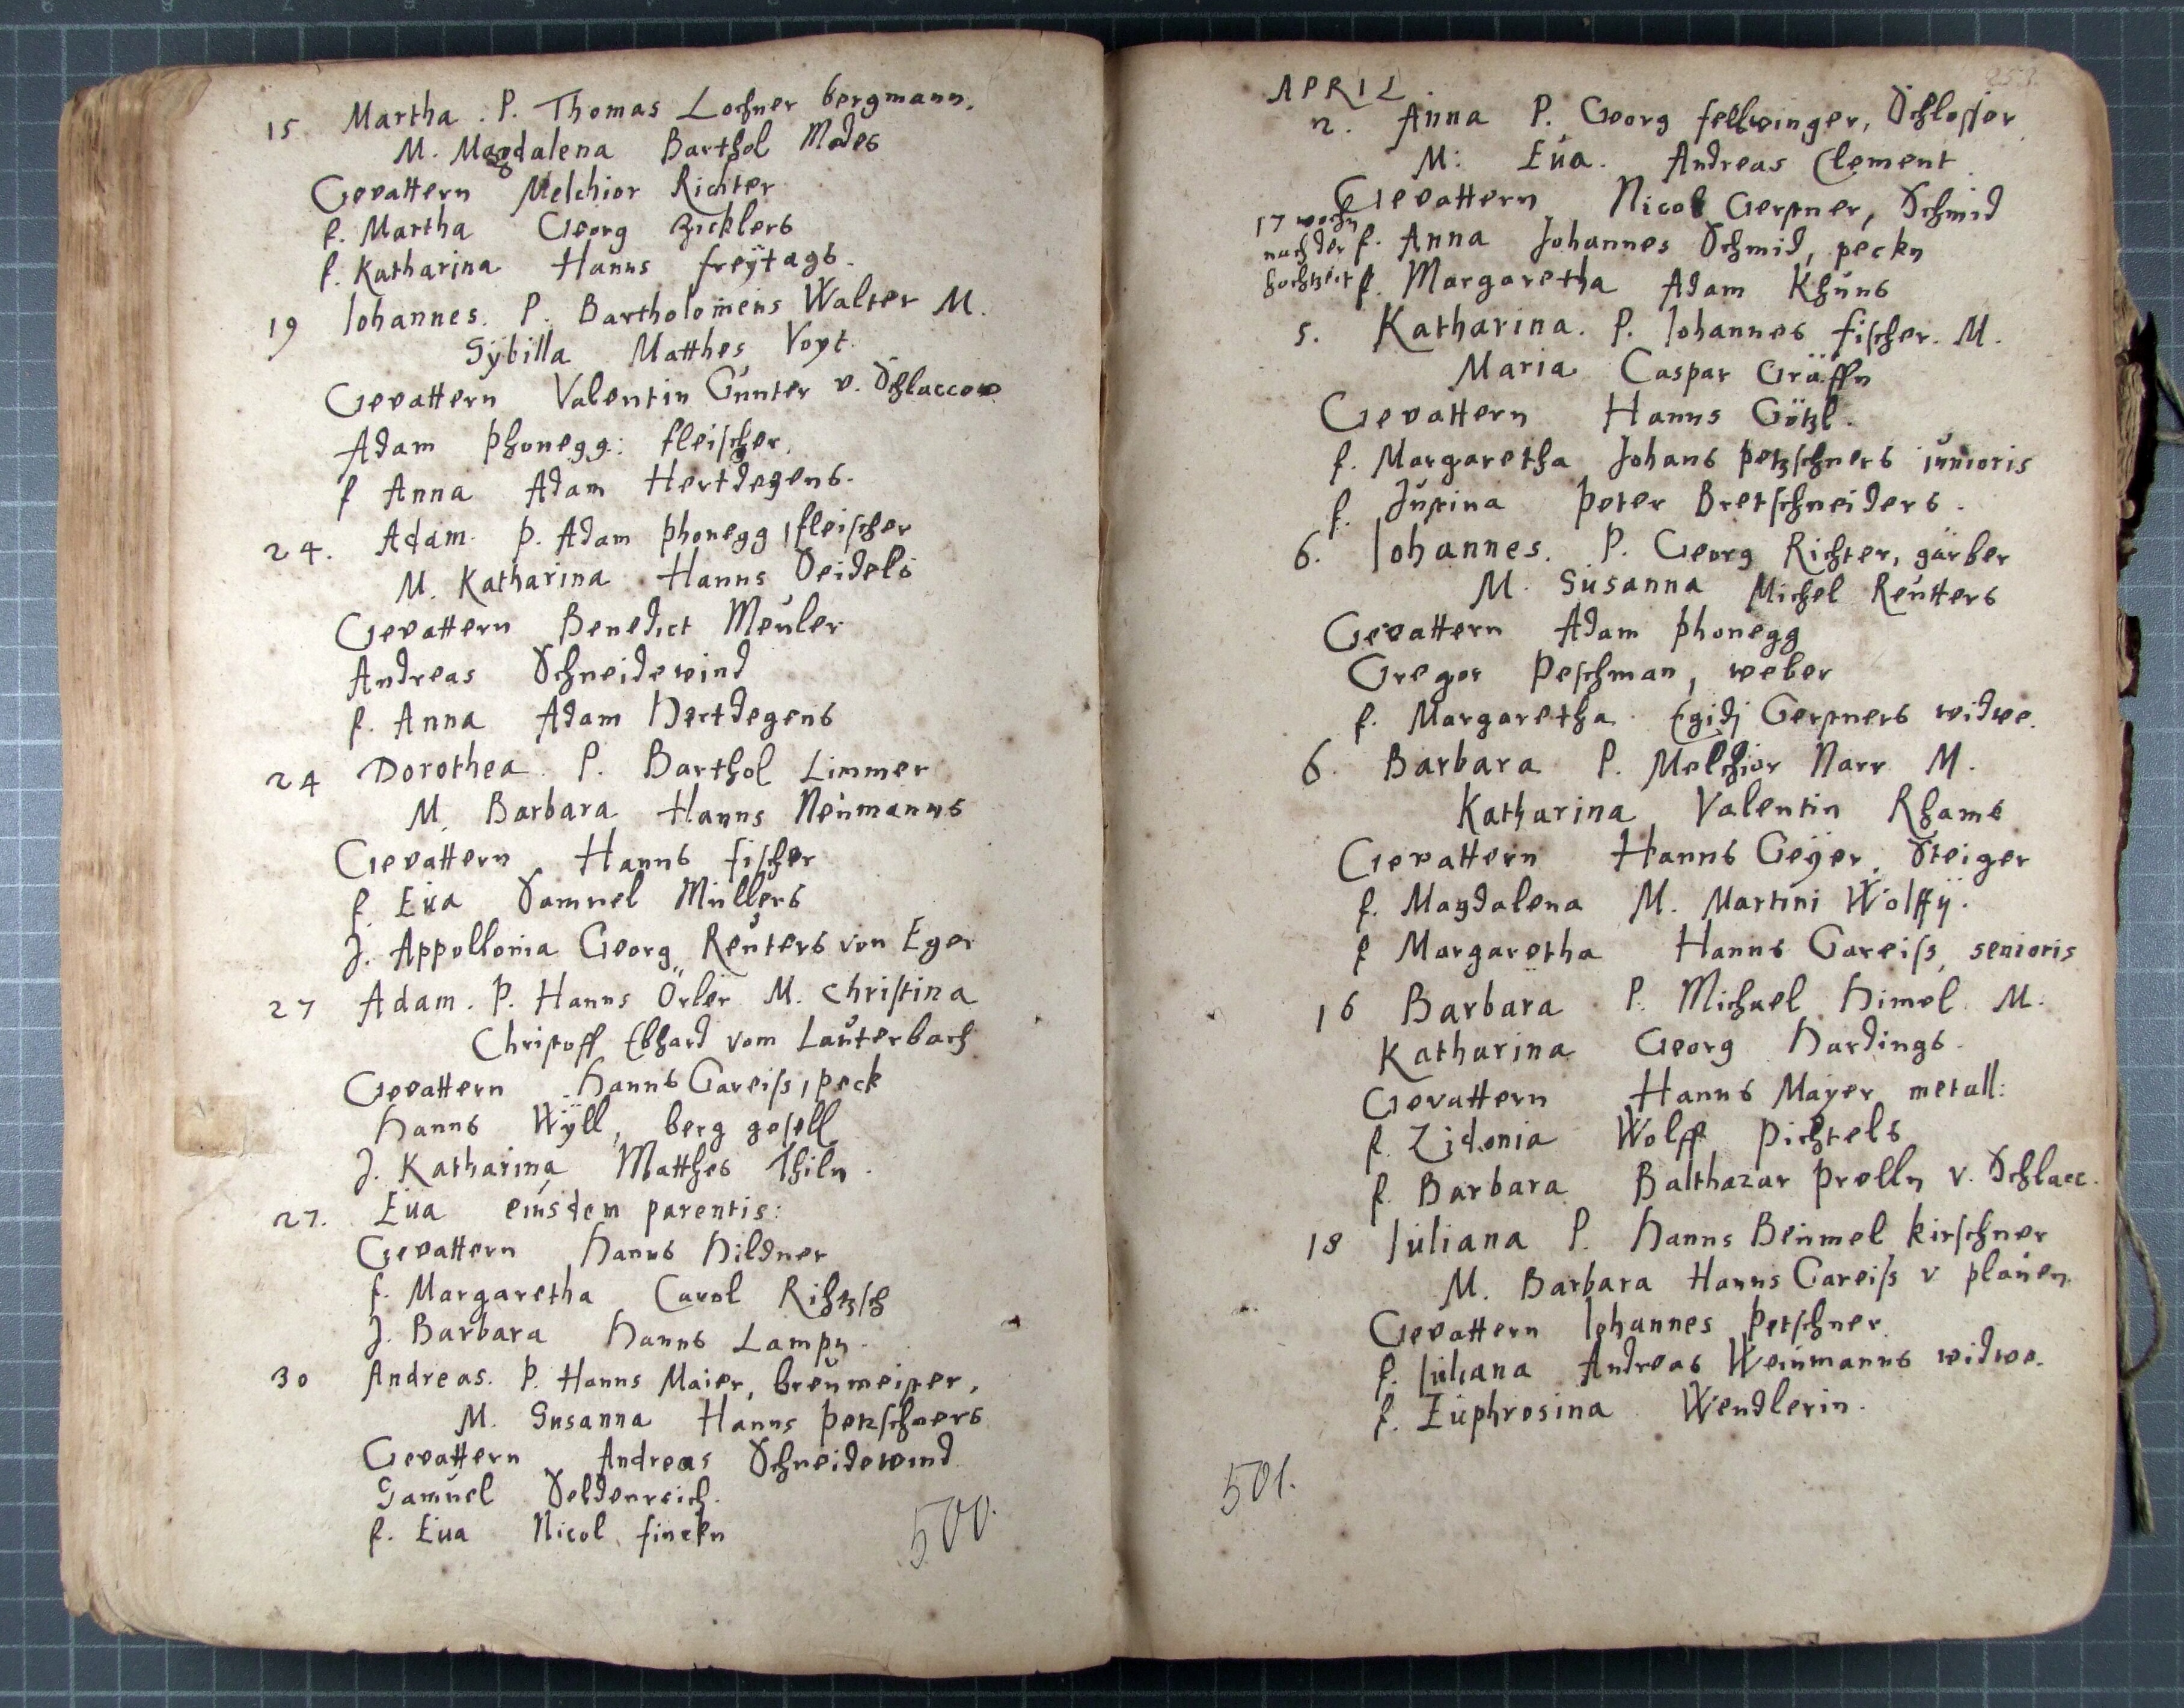 15 Martha. P. Thomas Lochner bergmann.
M. Magdalena Barthol Modes
Gevattern Melchior Richter
f. Martha Georg Zicklers
f. Katharina Hanns freÿtags.
19 Johannes. P. Bartholomeus Walter M.
Sÿbilla Matthes Voyt.
Gevattern Valentin Gunter v. Schlaccow
Adam Phonegg: fleischer.
f Anna Adam Hertdegens.
24. Adam. P. Adam Phonegg, fleischer
M. Katharina Hanns Seidels
Gevattern Benedict Meuler
Andreas Schneidewind
f. Anna Adam Hertdegens
24 Dorothea. P. Barthol Limmer
M. Barbara Hanns Neumanns
Gevattern Hanns fischer
f. Eua Samuel Mullers
J. Appollonia Georg Reuters von Eger
27 Adam. P. Hanns Örler M. Christina
Christoff Ebhard vom Lauterbach
Gevattern Hanns Gareiss, peck
Hanns Wÿll, berg gesell
J. Katharina Matthes Thiln.
27. Eua eiusdem parentis:
Gevattern Hanns Hildner
f. Margaretha Carol Rihtzsch
J. Barbara Hanns Lampn.
30 Andreas. P. Hanns Maier, breumeister,
M. Susanna Hanns Petzschners
Gevattern Andreas Schneidewind
Samuel Seldenreich.
f. Eua Nicol finckn
500.
APRIL
2. Anna P. Georg fellwinger, Schlosser
M: Eua. Andreas Clement.
Gevattern Nicol Gerstner, Schmid
17 wochn
nach der f. Anna Johannes Schmid, peckn
hochzeit f. Margaretha Adam Khuns
5. Katharina. P. Johannes fischer. M.
Maria Caspar Gräffn
Gevattern Hanns Götzl.
f. Margaretha Johans Petzschners iunioris
f. Justina Peter Bretschneiders.
6. Johannes. P. Georg Richter, gärber
M. Susanna Michel Reutters
Gevattern Adam Phonegg
Gregor Peschman, weber
f. Margaretha. Egidj Gerstners widwe.
6. Barbara P. Melchior Narr M.
Katharina Valentin Rhams
Gevattern Hanns Geÿer, Steiger
f. Magdalena M. Martini Wolffÿ.
f Margaretha Hanns Gareiss, senioris
16 Barbara P. Michael Himel M.
Katharina Georg Hardings.
Gevattern Hanns Mayer metall:
f. Zidonia Wolff Pichtels
f. Barbara Balthazar Prelln v. Schlacc.
18 Juliana P. Hanns Beumel kirschner
M. Barbara Hanns Gareiss v plauen.
Gevattern Johannes Petschner.
f. Juliana Andreas Weinmanns widwe.
f. Euphrosina Wendlerin.
501.